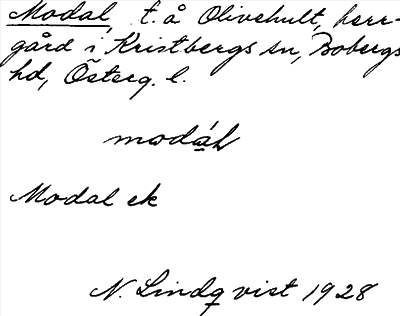 Modal, t. å Olivehult, herr-
gård i Kristbergs sn, Bobergs
hd, Österg. l.
modáL
Modal ek
N. Lindqvist 1928